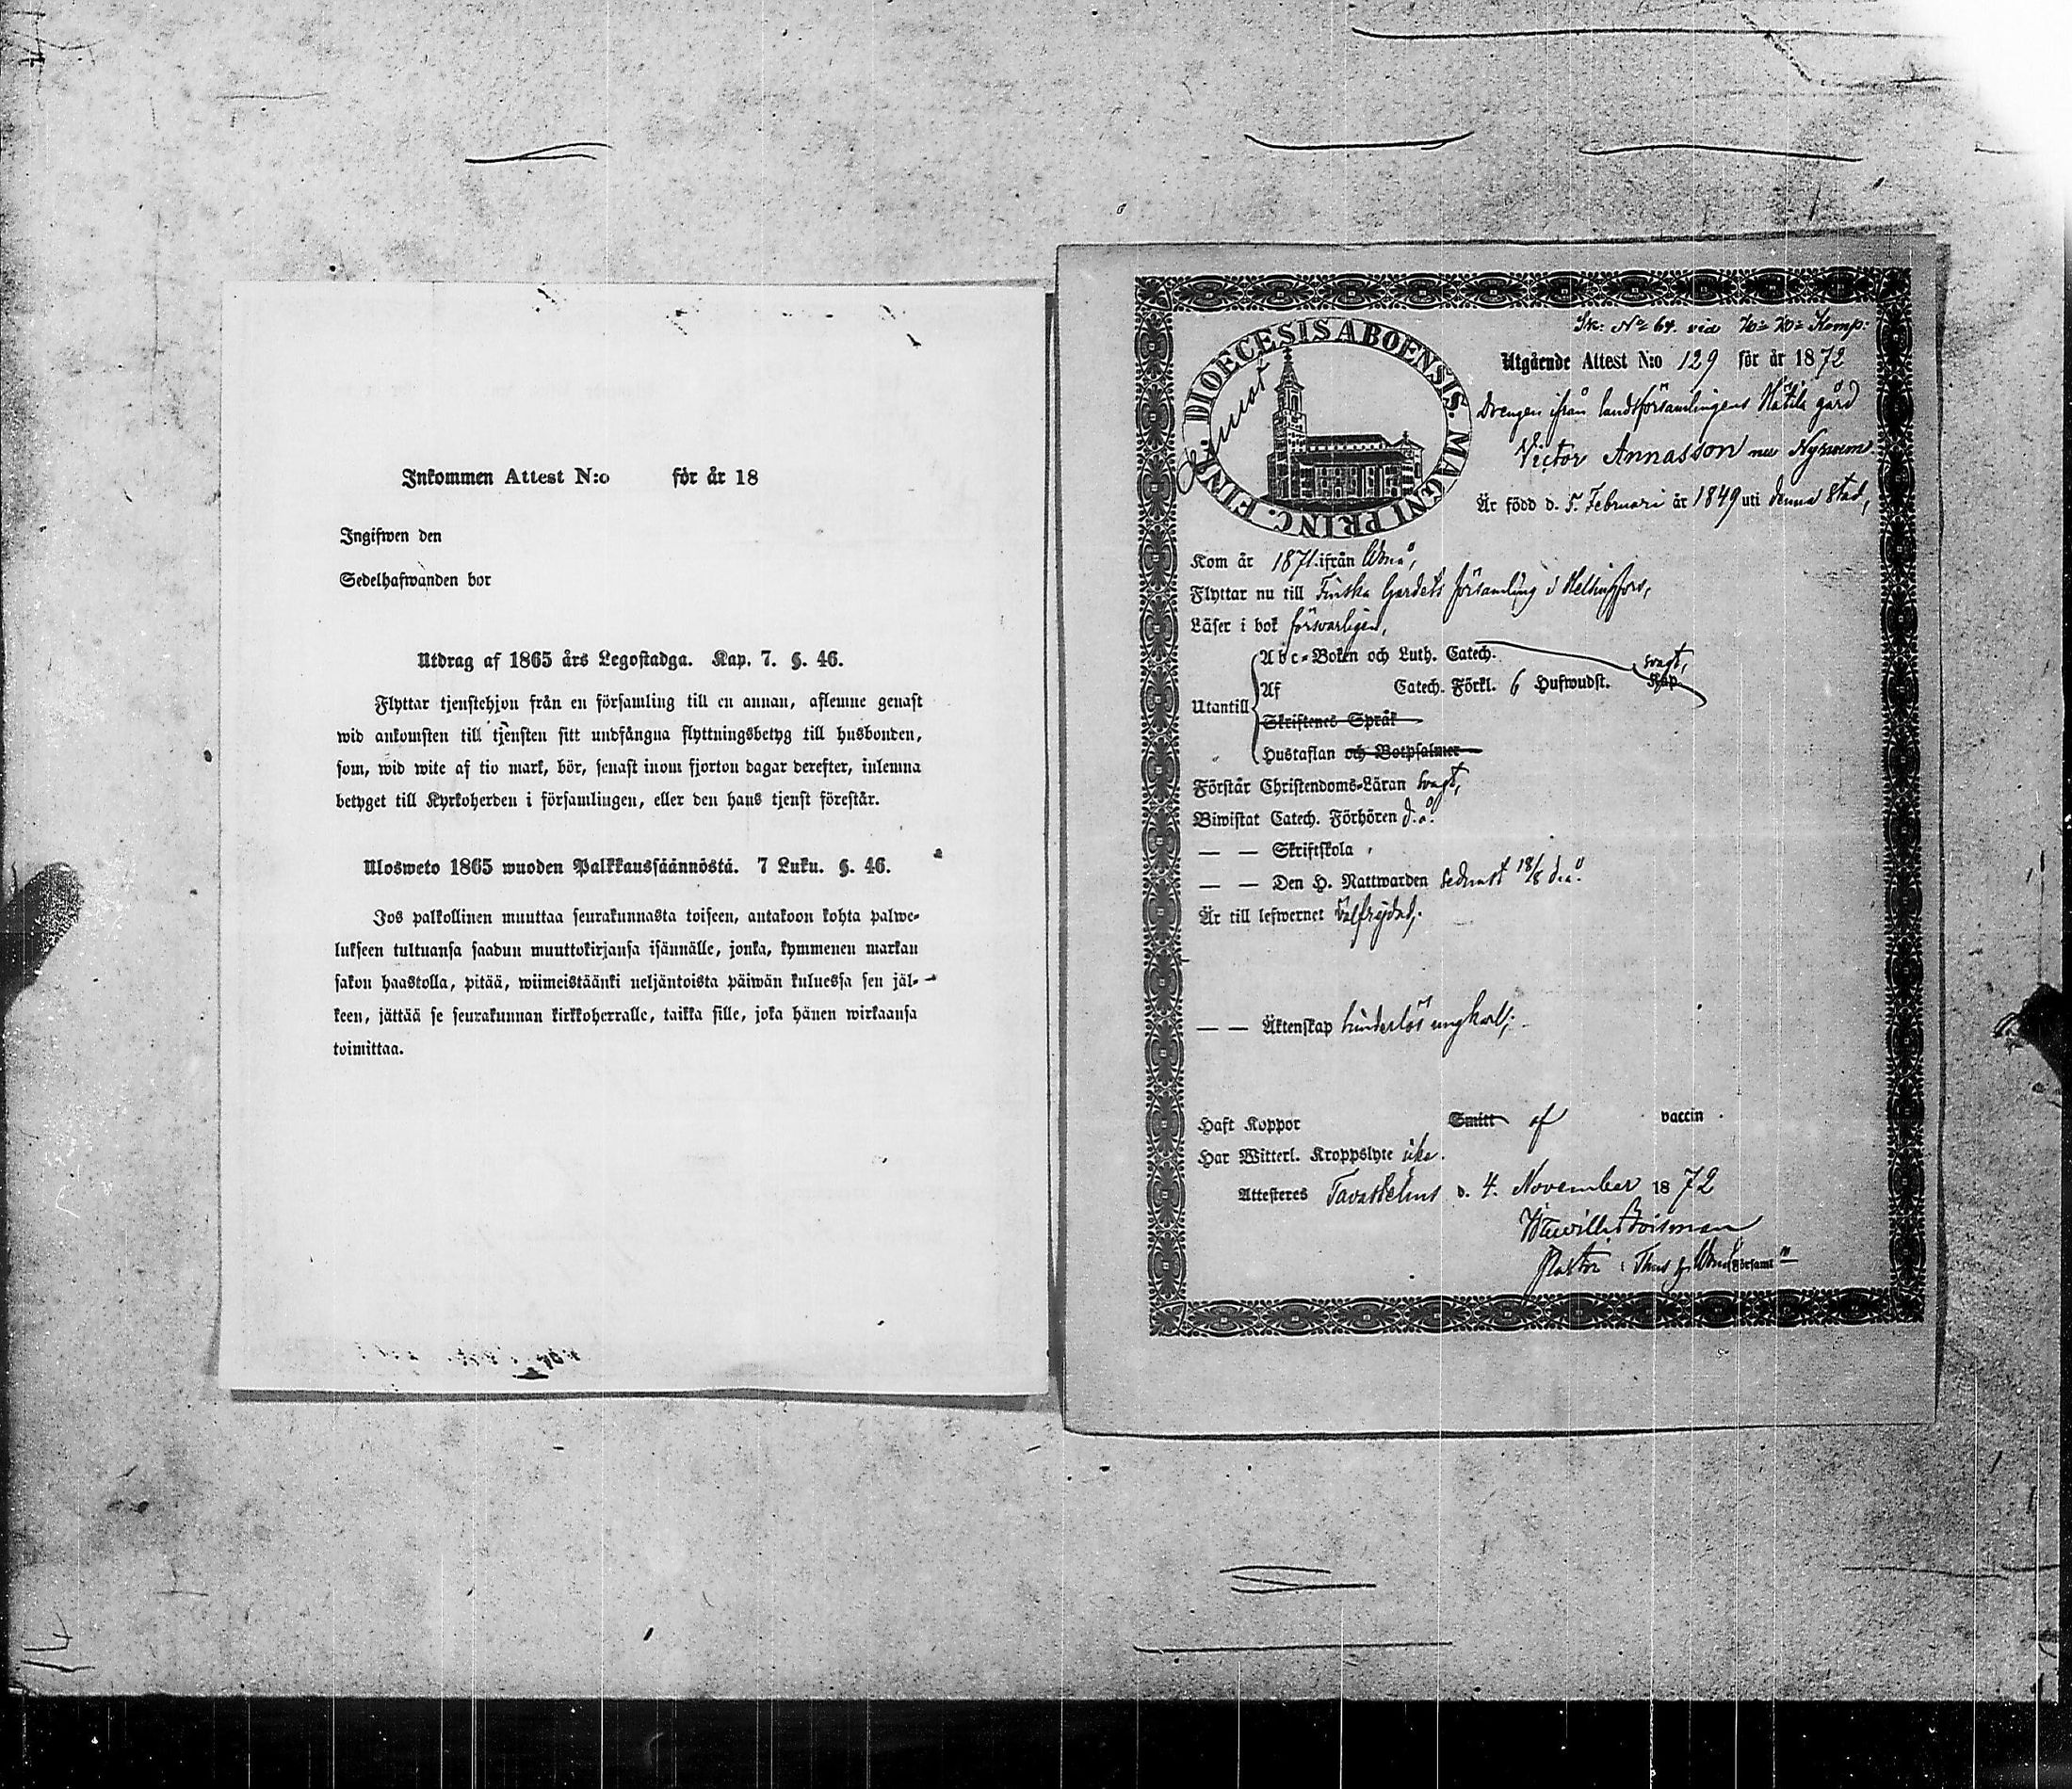 Inkommen Attest N:o för år 18
Ingifwen den
Sedelhafwanden bor
Utdrag af 1865 års Legostadga. Kap. 7. §. 46.
Flyttar tjenstehjon från en församling till en annan, aflemne genast
wid ankomsten till tjensten sitt undfångna flyttningsbetyg till husbonden,
som, wid wite af tio mark, bör, senast inom fjorton dagar derefter, inlemna
betyget till Kyrkoherden i församlingen, eller den hans tjenst förestår.
Ulosweto 1865 wuoden Palkkaussäännöstä. 7 Luku. §. 46.
Jos palkollinen muuttaa seurakunnasta toiseen, antakoon kohta palwe-
lukseen tultuansa saadun muuttokirjansa isännälle, jonka, kymmenen markan
sakon haastolla, pitää, wiimeistäänki neljäntoista päiwän kuluessa sen jäl-
keen, jättää se seurakunnan kirkkoherralle, taikka sille, joka hänen wirkaansa
toimittaa.
Sk: No 64. vid Komp:
DIOECESIS ABOENSIS. MAGNI PRINC. FINL.
Utgående Attest N:o 129 för år 1872
Drengen ifrån landsförsamlingens Hätilä gård
Victor Annasson nu Nyman.
Är född d. 5. Februari år 1849 uti denna Stad,
Kom år 1871. ifrån
Flyttar nu till Finska Gardets församling i Helsingfors,
Läser i bok försvarligen,
Abc-Boken och Luth. Catech.
svagt,
Utantill Af Catech. Förkl. 6 Hufwudst. Kap.
Skriftenes Språk
Hustaflan och Botpsalmer
Förstår Christendoms-Läran svagt,
Biwistat Catech. Förhören d. å.
— — Skriftskola
— — Den H. Nattwarden sednast 18/8 d. å.
Är till lefwernet välfrejdad,
— — Äktenskap hinderlös ungkarl;
Haft Koppor Smitt af vaccin
Har Witterl. Kroppslyte icke.
Attesteres Tavastehus d. 4. November 1872
Boisman
Pastor Församl